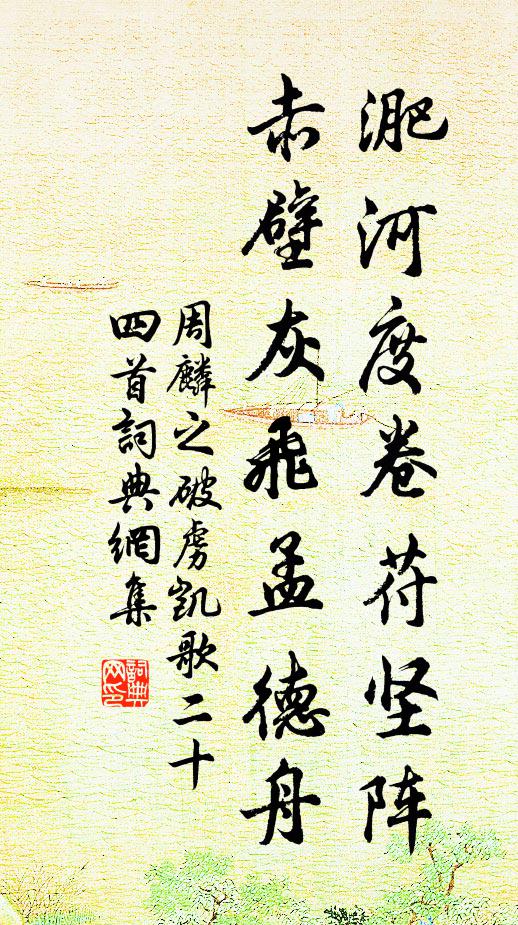 淝河度卷苻坚阵
赤壁灰飛孟德舟
周麟之破虏凱歌二十
四首詞典網集
詞典网印